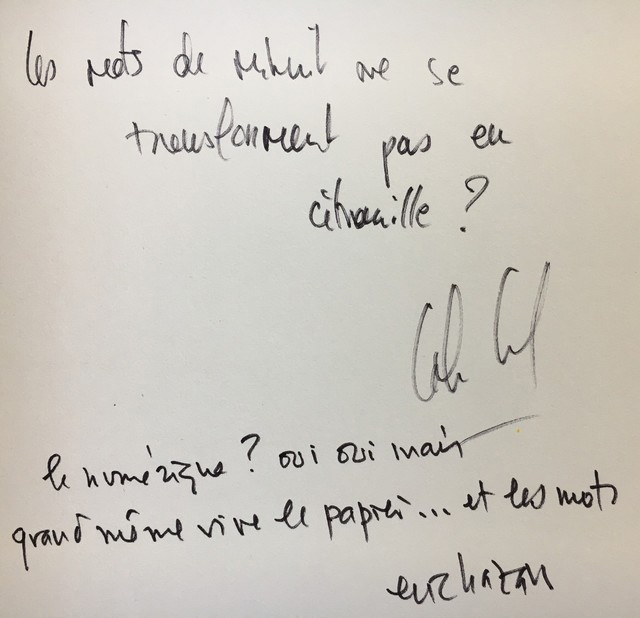 les mots de minuit ne se
transforment pas en
citrouille ?
le numérique ? oui oui mais
grand même vive le papier... et les mots